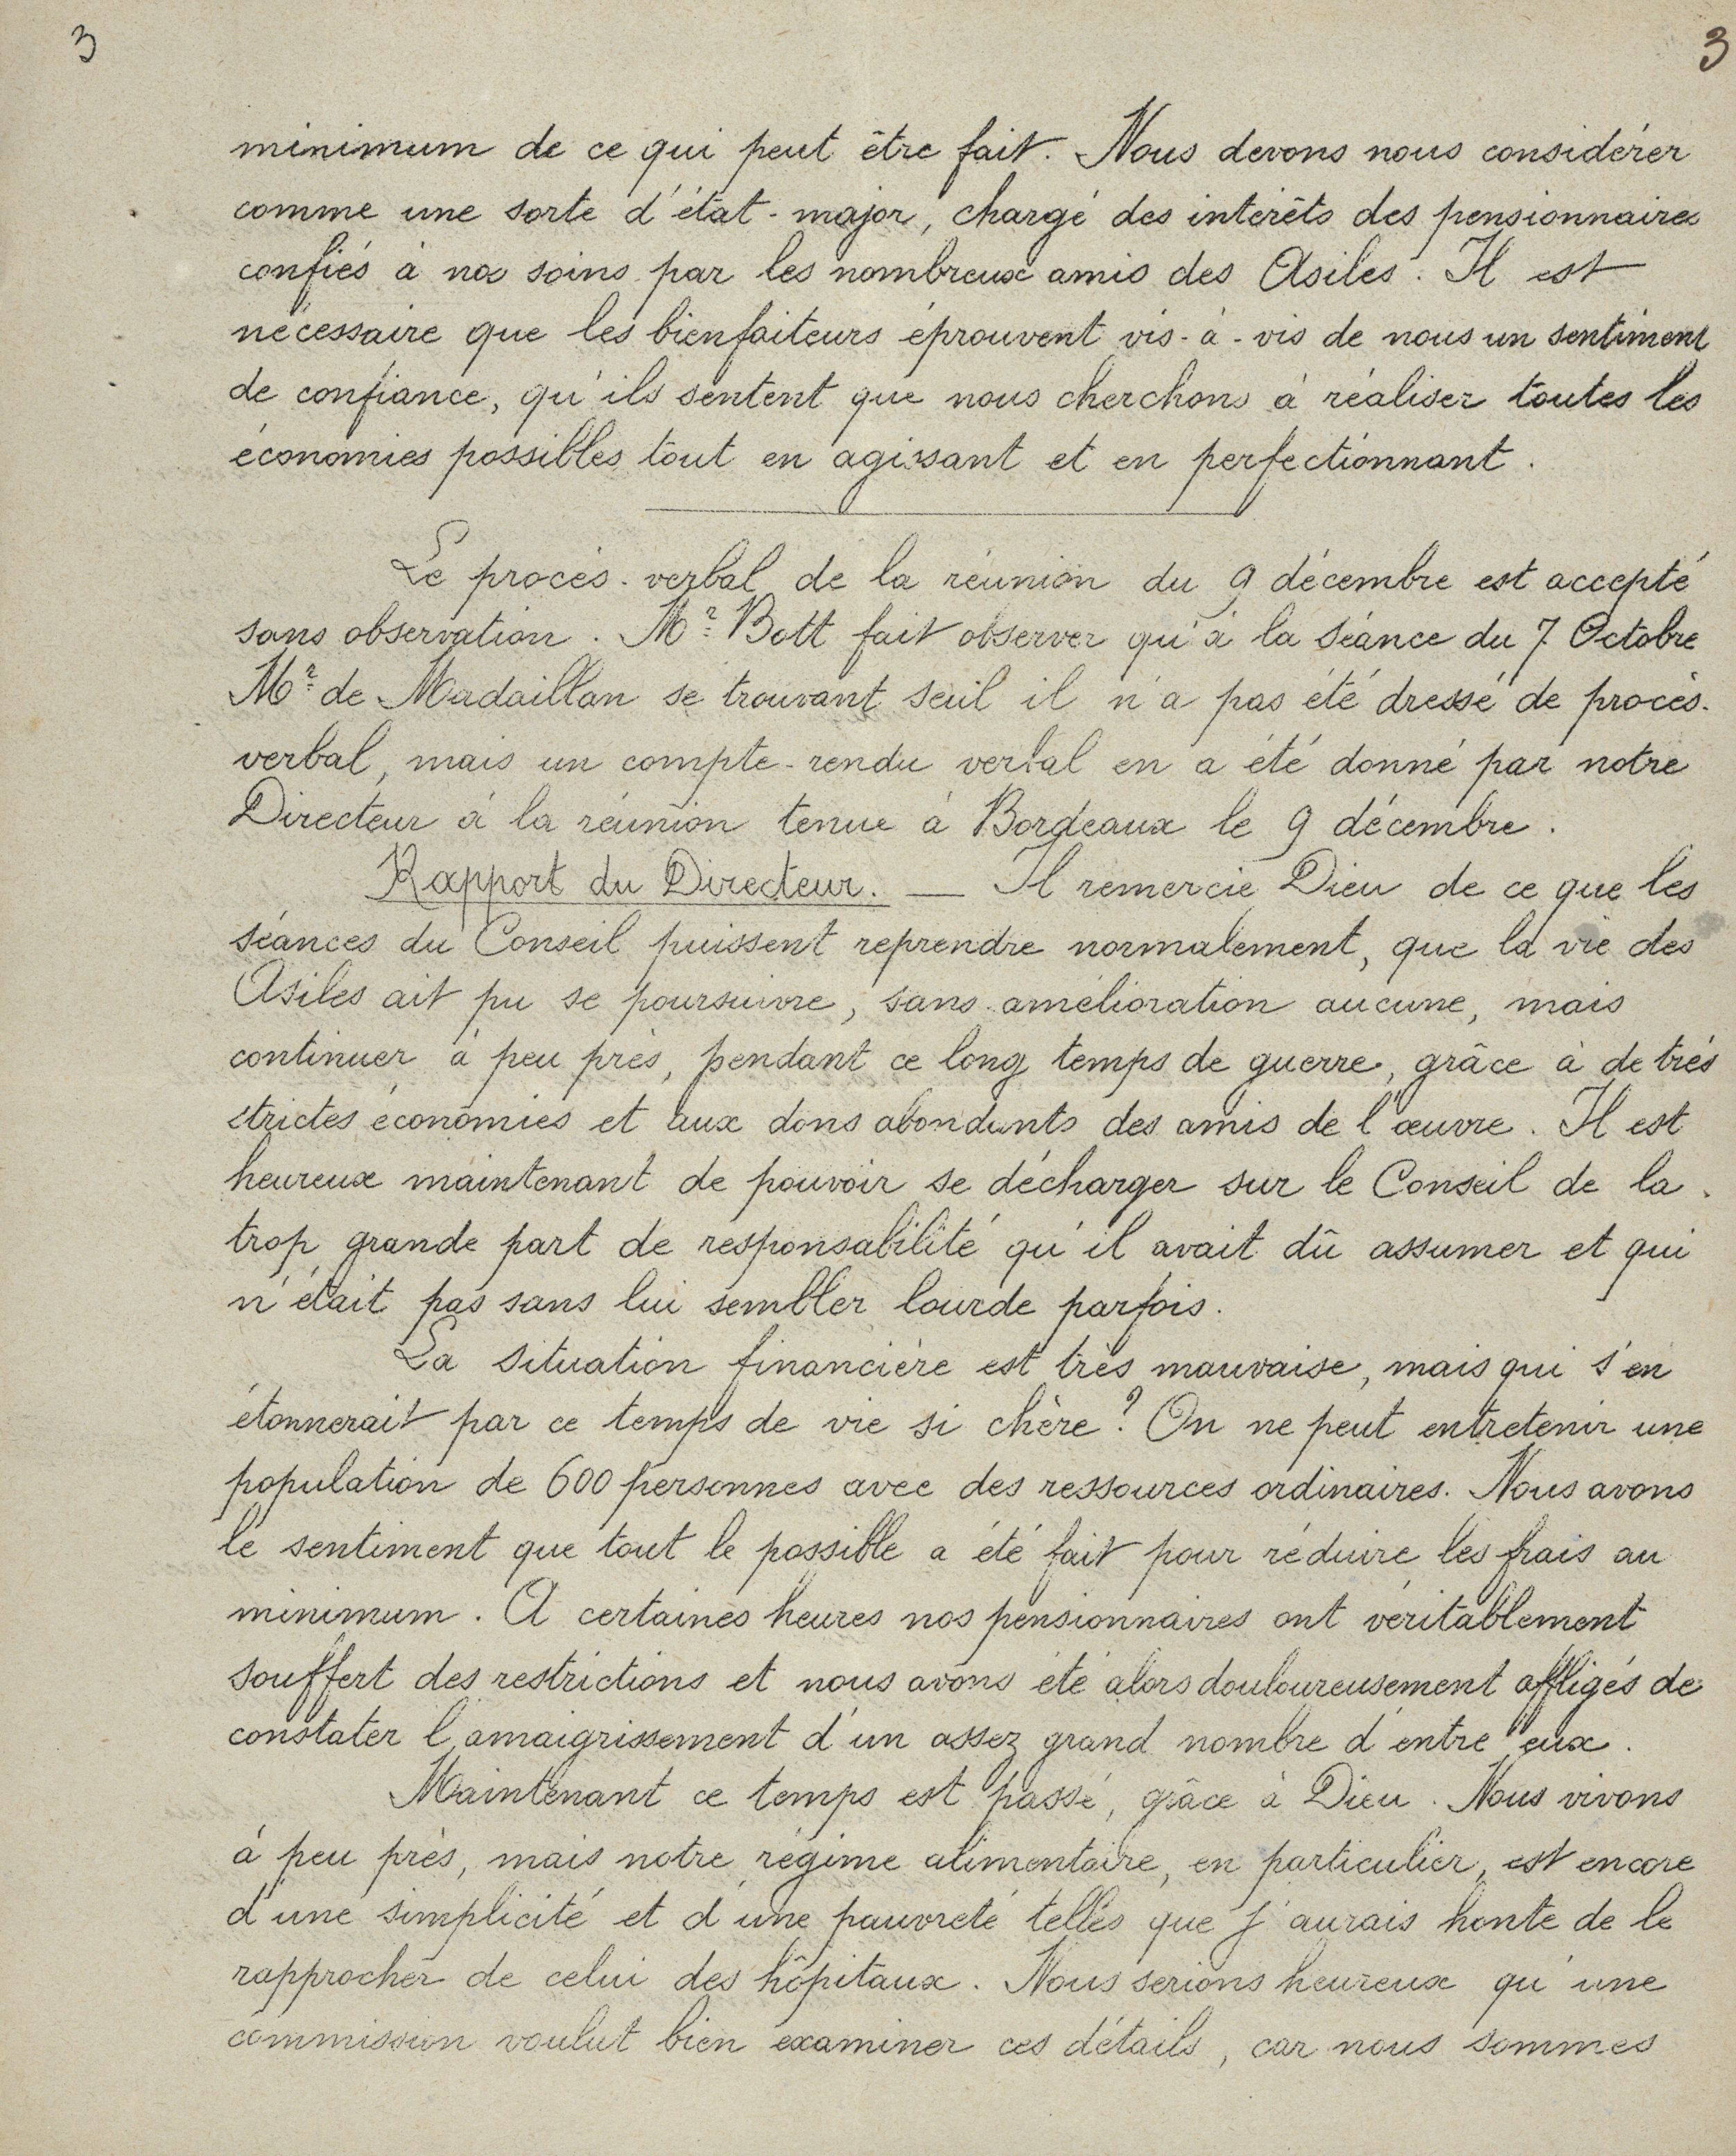 3
3
minimum de ce qui peut être fait. Nous devons nous considérer
comme une sorte d'état-major, chargé des intérêts des pensionnaires
confiés à nos soins par les nombreux amis des Asiles. Il est
nécessaire que les bienfaiteurs éprouvent vis-à-vis de nous un sentiment
de confiance, qu'ils sentent que nous cherchons à réaliser toutes les
économies possibles tout en agissant et en perfectionnant.
Le procès-verbal de la réunion du 9 décembre est accepté
sans observation. Mr Bott fait observer qu'à la séance du 7 Octobre
Mr de Madaillan se trouvant seul il n'a pas été dressé de procès-
verbal, mais un compte-rendu verbal en a été donné par notre
Directeur à la réunion tenue à Bordeaux le 9 décembre.
Rapport du Directeur. — Il remercie Dieu de ce que les
séances du Conseil puissent reprendre normalement, que la vie des
Asiles ait pu se poursuivre, sans amélioration aucune, mais
continuer à peu près, pendant ce long temps de guerre, grâce à de très
strictes économies et aux dons abondants des amis de l'œuvre. Il est
heureux maintenant de pouvoir se décharger sur le Conseil de la
trop grande part de responsabilité qu'il avait dû assumer et qui
n'était pas sans lui sembler lourde parfois.
La situation financière est très mauvaise, mais qui s'en
étonnerait par ce temps de vie si chère? On ne peut entretenir une
population de 600 personnes avec des ressources ordinaires. Nous avons
le sentiment que tout le possible a été fait pour réduire les frais au
minimum. A certaines heures nos pensionnaires ont véritablement
souffert des restrictions et nous avons été alors douloureusement affligés de
constater l'amaigrissement d'un assez grand nombre d'entre eux.
Maintenant ce temps est passé, grâce à Dieu. Nous vivons
à peu près, mais notre régime alimentaire, en particulier, est encore
d'une simplicité et d'une pauvreté telles que j'aurais honte de le
rapprocher de celui des hôpitaux. Nous serions heureux qu'une
commission voulut bien examiner ces détails, car nous sommes